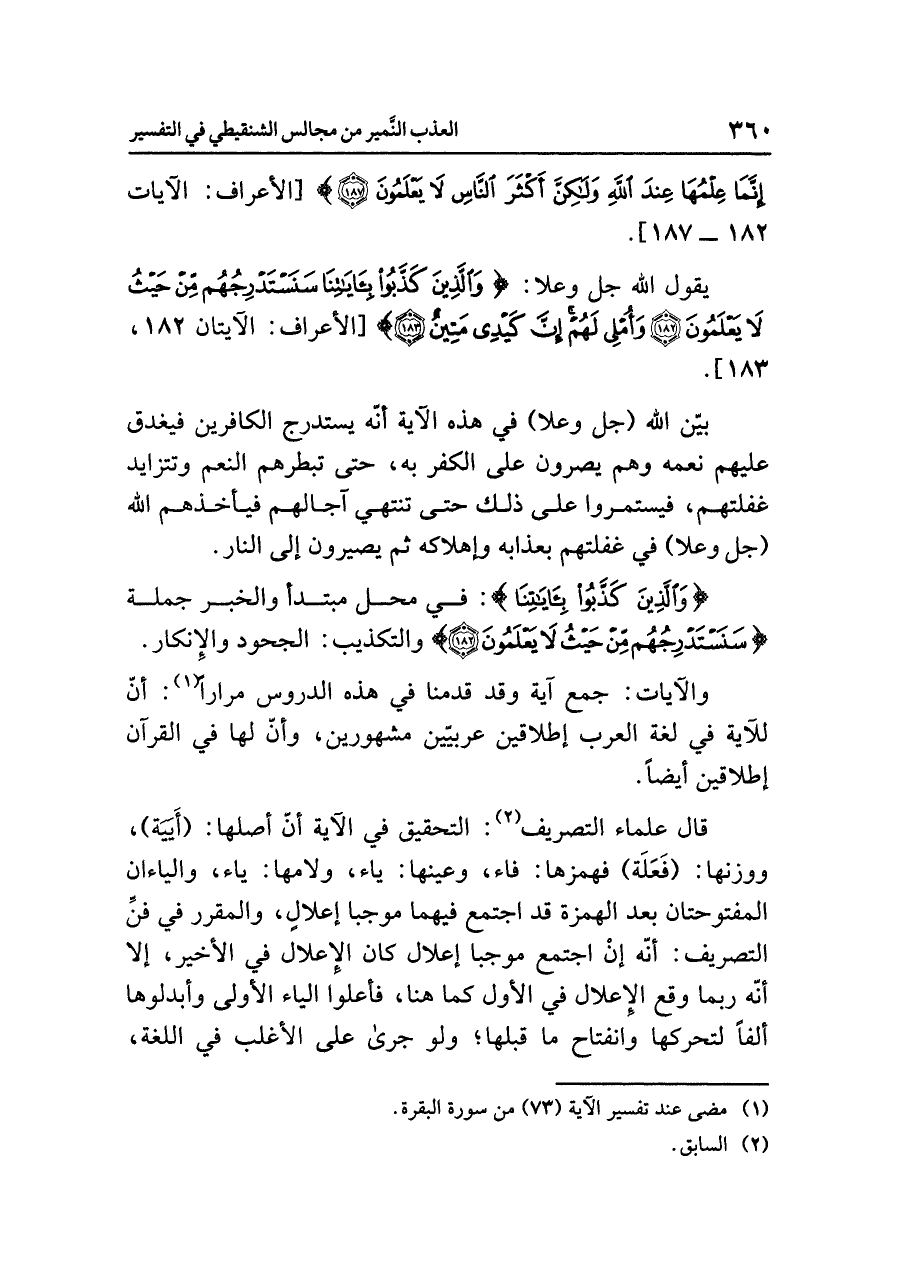 ٣٦٠ العذب النَّمير من مجالس الشنقيطي في التفسير
إِنَّمَا عِلْمُهَا عِندَ ٱللَّهِ وَلَٰكِنَّ أَكْثَرَ ٱلنَّاسِ لَا يَعْلَمُونَ ﴿١٨٧﴾ ﴾ [الأعراف: الآيات
١٨٢ ــ ١٨٧].
يقول الله جل وعلا: ﴿ وَٱلَّذِينَ كَذَّبُوا۟ بِـَٔايَٰتِنَا سَنَسْتَدْرِجُهُم مِّنْ حَيْثُ
لَا يَعْلَمُونَ ﴿١٨٢﴾ وَأُمْلِى لَهُمْ ۚ إِنَّ كَيْدِى مَتِينٌ ﴿١٨٣﴾ ﴾ [الأعراف: الآيتان ١٨٢،
١٨٣].
بيّن الله (جل وعلا) في هذه الآية أنّه يستدرج الكافرين فيغدق
عليهم نعمه وهم يصرون على الكفر به، حتى تبطرهم النعم وتتزايد
غفلتهم، فيستمروا على ذلك حتى تنتهي آجالهم فيأخذهم الله
(جل وعلا) في غفلتهم بعذابه وإهلاكه ثم يصيرون إلى النار.
﴿ وَٱلَّذِينَ كَذَّبُوا۟ بِـَٔايَٰتِنَا ﴾: في محل مبتدأ والخبر جملة
﴿ سَنَسْتَدْرِجُهُم مِّنْ حَيْثُ لَا يَعْلَمُونَ ﴿١٨٢﴾ ﴾ والتكذيب: الجحود والإِنكار.
والآيات: جمع آية وقد قدمنا في هذه الدروس مراراً(١): أنّ
للآية في لغة العرب إطلاقين عربيّين مشهورين، وأنّ لها في القرآن
إطلاقين أيضاً.
قال علماء التصريف(٢): التحقيق في الآية أنّ أصلها: (أَيَيَة)،
ووزنها: (فَعَلَة) فهمزها: فاء، وعينها: ياء، ولامها: ياء، والياءان
المفتوحتان بعد الهمزة قد اجتمع فيهما موجبا إعلالٍ، والمقرر في فنِّ
التصريف: أنّه إنْ اجتمع موجبا إعلال كان الإِعلال في الأخير، إلا
أنّه ربما وقع الإِعلال في الأول كما هنا، فأعلوا الياء الأولى وأبدلوها
ألفاً لتحركها وانفتاح ما قبلها؛ ولو جرىٰ على الأغلب في اللغة،
(١) مضى عند تفسير الآية (٧٣) من سورة البقرة.
(٢) السابق.